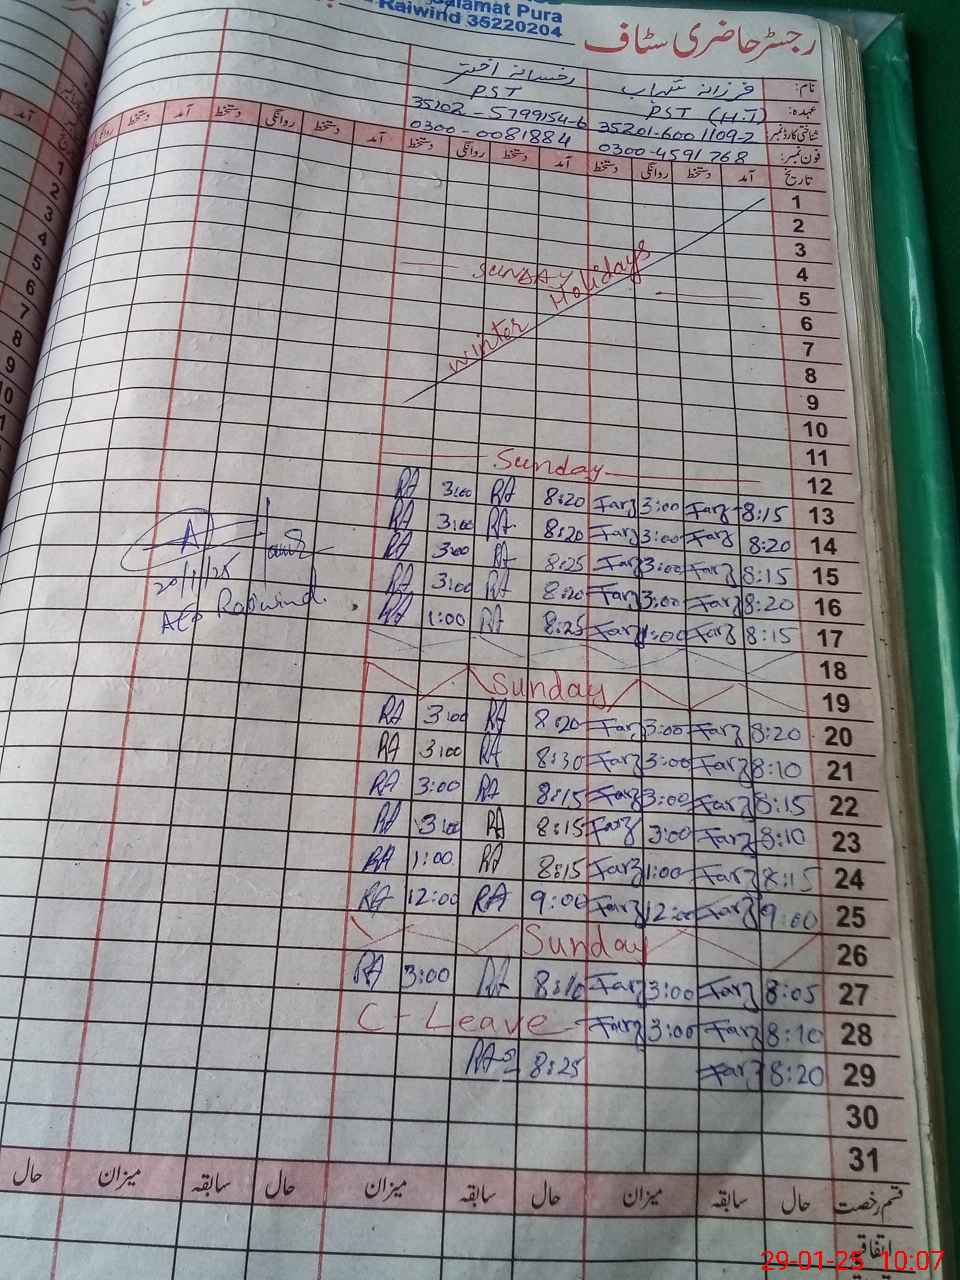 alamat Pura
Raiwind 35220204
رجسٹر حاضری سٹاف
نام: فرزانہ سہراب رخسانہ اختر
عہدہ: PST (H.T) PST
شناختی کارڈ نمبر 35201-6001109-2 35202-5799154-6
فون نمبر: 0300-4591768 0300-0081884
تاریخ آمد دستخط روانگی دستخط آمد دستخط روانگی دستخط آمد دستخط روانگی دستخط آمد دستخط
1
2
3
4
SUNDAY
5
Winter Holidays
6
7
8
9
10
11
Sunday
12
RA 3:00 RA 8:20 Farz 3:00 Farz 8:15 13
RA 3:00 RA 8:20 Farz 3:00 Farz 8:20 14
RA 3:00 RA 8:25 Farz 3:00 Farz 8:15 15
RA 3:00 RA 8:20 Farz 3:00 Farz 8:20 16
RA 1:00 RA 8:25 Farz 1:00 Farz 8:15 17
20/1/25
AEO Raiwind.
18
Sunday 19
RA 3:00 RA 8:20 Farz 3:00 Farz 8:20 20
RA 3:00 RA 8:30 Farz 3:00 Farz 8:10 21
RA 3:00 RA 8:15 Farz 3:00 Farz 8:15 22
RA 3:00 RA 8:15 Farz 3:00 Farz 8:10 23
RA 1:00 RA 8:15 Farz 1:00 Farz 8:15 24
RA 12:00 RA 9:00 Farz 12:00 Farz 9:00 25
Sunday 26
RA 3:00 RA 8:10 Farz 3:00 Farz 8:05 27
C - Leave - Farz 3:00 Farz 8:10 28
RA 8:25 Farz 8:20 29
30
31
قسم رخصت حال سابقہ میزان حال سابقہ میزان حال سابقہ میزان حال
اتفاقیہ
29-01-25 10:07